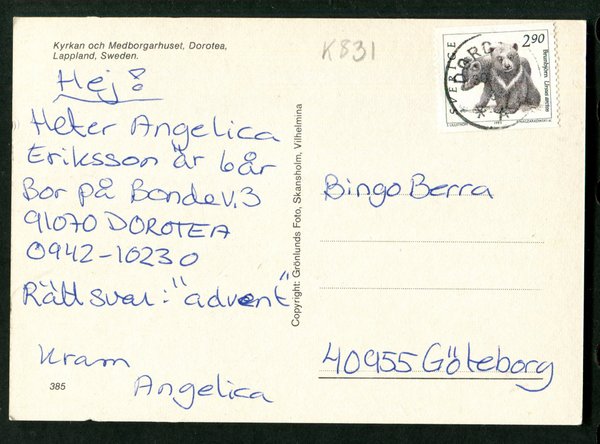 Kyrkan och Medborgarhuset, Dorotea,
Lappland, Sweden.
K831
Hej!
Heter Angelica
Eriksson är 6år
Bor på Bondev.3
91070 DOROTEA
0942-10230
Rätt svar: "advent"
Kram
Angelica
385
Copyright: Grönlunds Foto, Skansholm, Vilhelmina
SVERIGE
2.90
DORO
Bingo Berra
40955 Göteborg